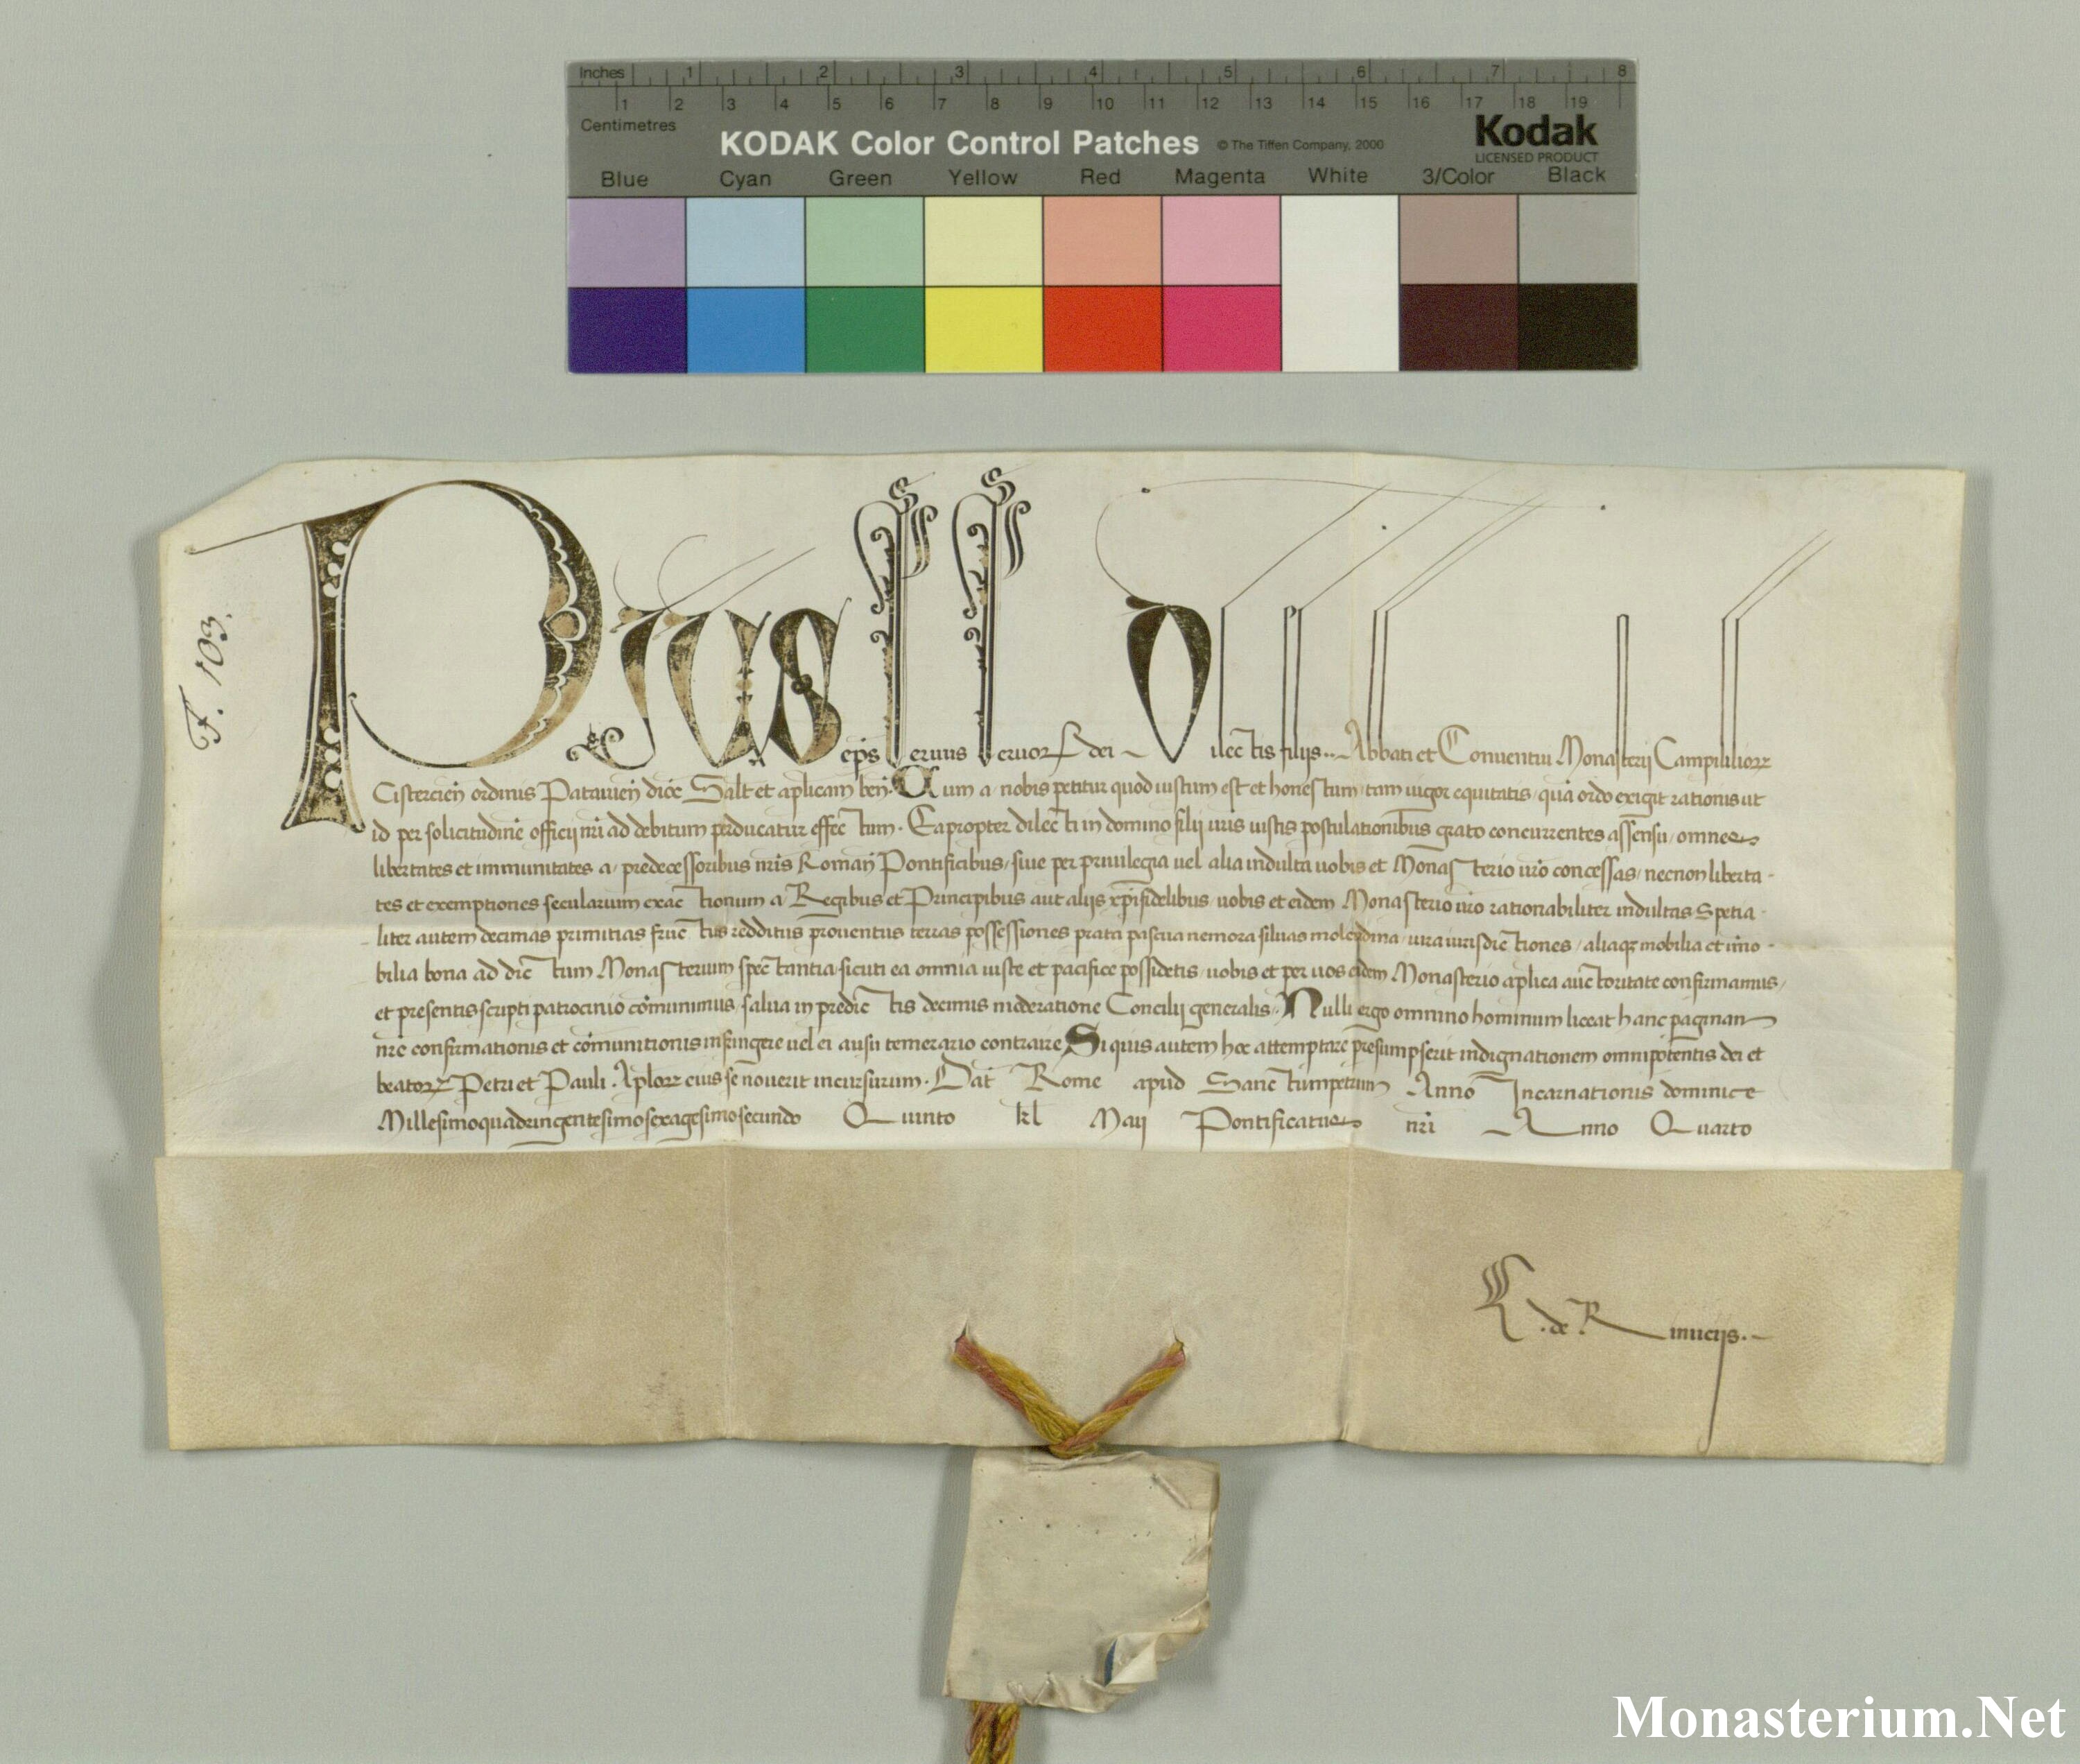 Inches 1 2 3 4 5 6 7 8
1 2 3 4 5 6 7 8 9 10 11 12 13 14 15 16 17 18 19
Centimetres
KODAK Color Control Patches © The Tiffen Company, 2000 Kodak
LICENSED PRODUCT
Blue Cyan Green Yellow Red Magenta White 3/Color Black
F. 103.
Pius eps servus servorꝝ dei Dilectis filijs .. Abbati et Conventui Monasterij Campililiorꝝ
Cistercien̄ ordinis Patavien̄ dioc̄ Salt̄ et aplicam ben̄. Cum a nobis petitur quod iustum est et honestum tam vigor equitatis qua ordo exigit rationis ut
id per solicitudinē officij nr̄i ad debitum perducatur effectum. Eapropter dilecti in domino filij vr̄is iustis postulationibus grato concurrentes assensu, omnes
libertates et immunitates a predecessoribus nr̄is Roman̄ Pontificibus, sive per privilegia vel alia indulta vobis et Monasterio vr̄o concessas, necnon liberta-
tes et exemptiones secularium exactionum a Regibus et Principibus aut alijs xp̄ifidelibus vobis et eidem Monasterio vr̄o rationabiliter indultas Spetia-
liter autem decimas primitias fructus redditus proventus terras possessiones prata pascua nemora silvas molendina iura iurisdictiones, aliaqꝫ mobilia et īmo-
bilia bona ad dictum Monasterium spectantia sicuti ea omnia iuste et pacifice possidetis, vobis et per vos eidem Monasterio aplica auctoritate confirmamus,
et presentis scripti patrocinio cōmunimus, salva in predictis decimis moderatione Concilij generalis. Nulli ergo omnino hominum liceat hanc paginam
nr̄e confirmationis et cōmunitionis infringere vel ei ausu temerario contraire Si quis autem hoc attemptare presumpserit indignationem omnipotentis dei et
beatorꝝ Petri et Pauli Aplorꝝ eius se noverit incursurum. Dat̄ Rome apud Sanctumpetrum Anno Incarnationis dominice
Millesimoquadringentesimosexagesimosecundo Quinto kl Maij Pontificatus nr̄i Anno Quarto
.de. R mucijs.
Monasterium.Net